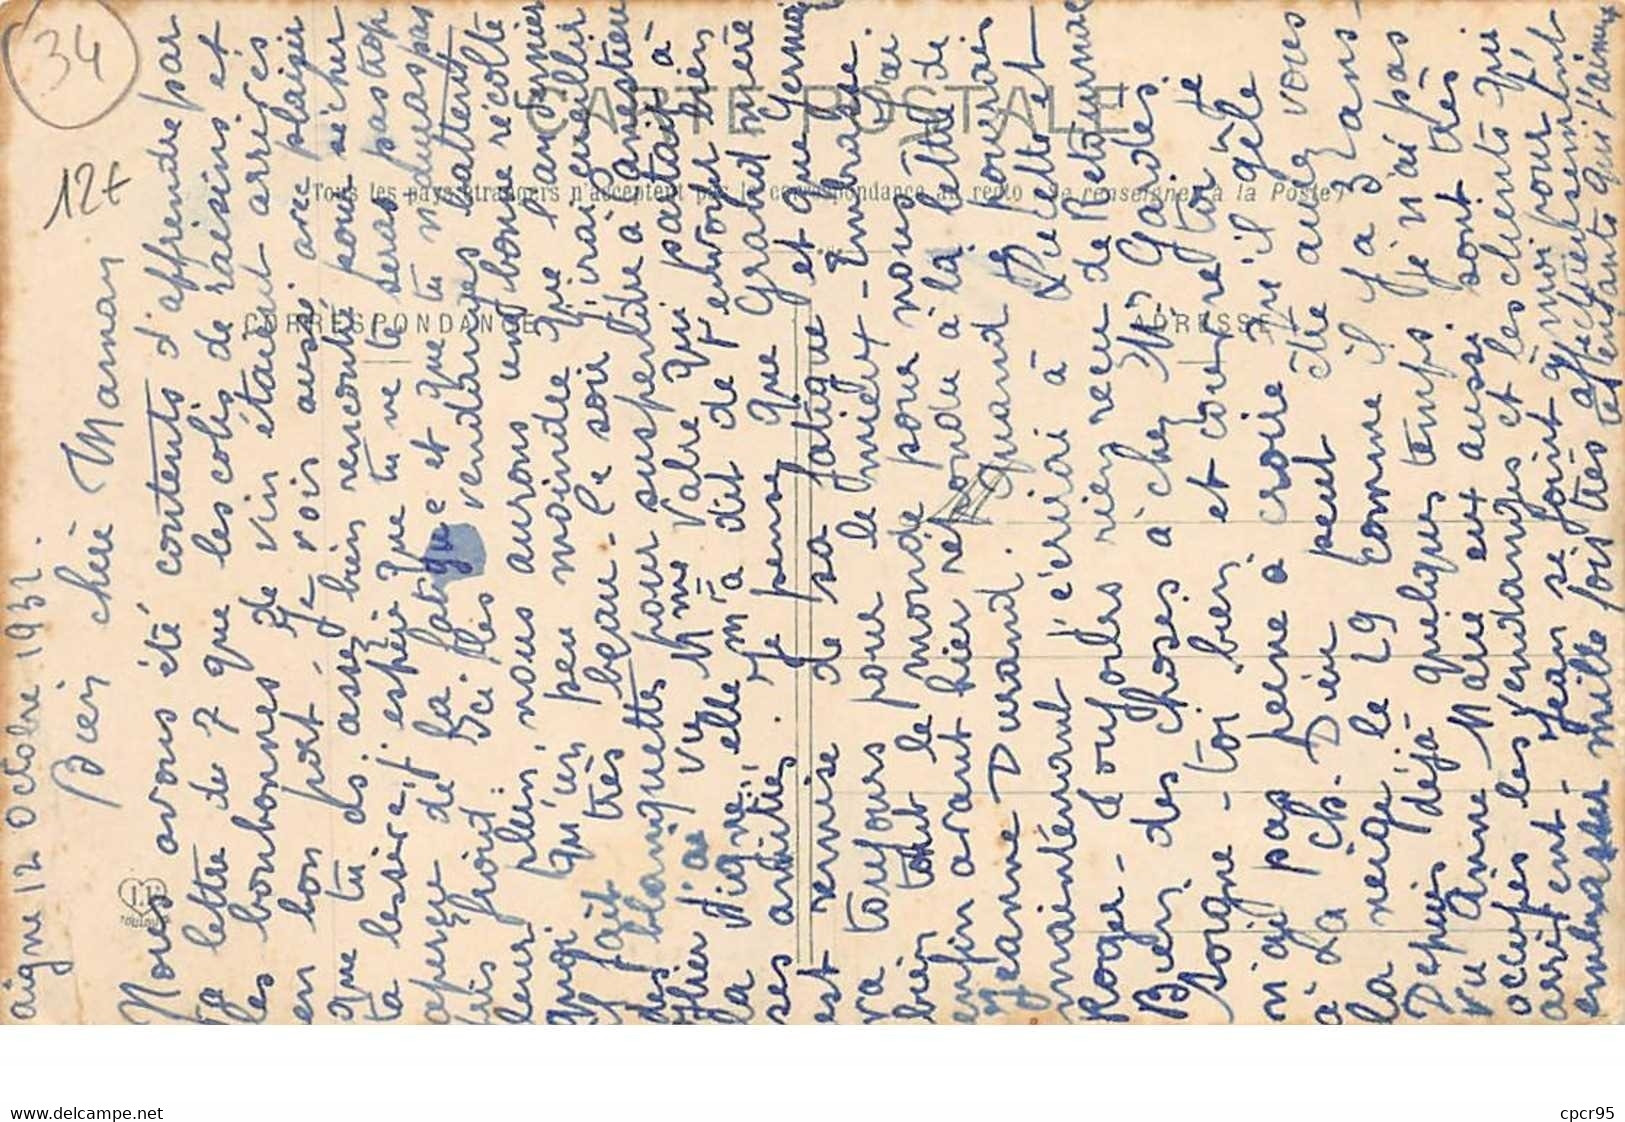 34
12€
CARTE POSTALE
Tous les pays étrangers n'acceptent pas la correspondance au recto (Se renseigner à la Poste)
CORRESPONDANCE
ADRESSE
aigne 12 Octobre 1932.
Bien chère Maman
Nous avons été contents d'apprendre par
ta lettre de 7 que les colis de raisins et
les bonbonnes de vin étaient arrivés
en bon port - Je vois aussi avec plaisir
que tu as assez bien rencontré pour sécher
ta lessive, j'espère que tu ne te seras pas trop
aperçue de la fatigue et que tu n'auras pas
pris froid. Ici les vendanges battent
leur plein, nous aurons une bonne récolte
quoi qu'un peu moindre que l'an dernier
Il fait très beau - Ce soir j'irai cueillir
des blanquettes pour suspendre à
Hier j'ai vu Mme Valre qui partait à
la vigne, elle m'a dit de t'envoyer bien
ses amitiés. Je pense que Grand'mère
est remise de sa fatigue et que Germ
va toujours pour le mieux - Embrasse
bien tout le monde pour nous. J'ai
enfin avant hier répondu à la lettre de
Jeanne Durand. Quand je pourrais
maintenant j'écrirai à Lucette et
Roger - Toujours rien reçu de
Bien des choses à chez Mrs Gardes
Soigne - toi bien et couvre toi je
n'ai pas peine à croire qu'il gèle
à La Ch. Dieu peut être avez vous
la neige le 29 comme il y a 3 ans -
Depuis déjà quelques temps je n'ai pas
vu Anne Marie eux aussi sont très
occupés les vendanges et les clients qui
arrivent - Jean se joint à moi pour t'
embrasser mille fois très affectueusement
tes enfants qui t'aiment
delcampe.net
cpcr95